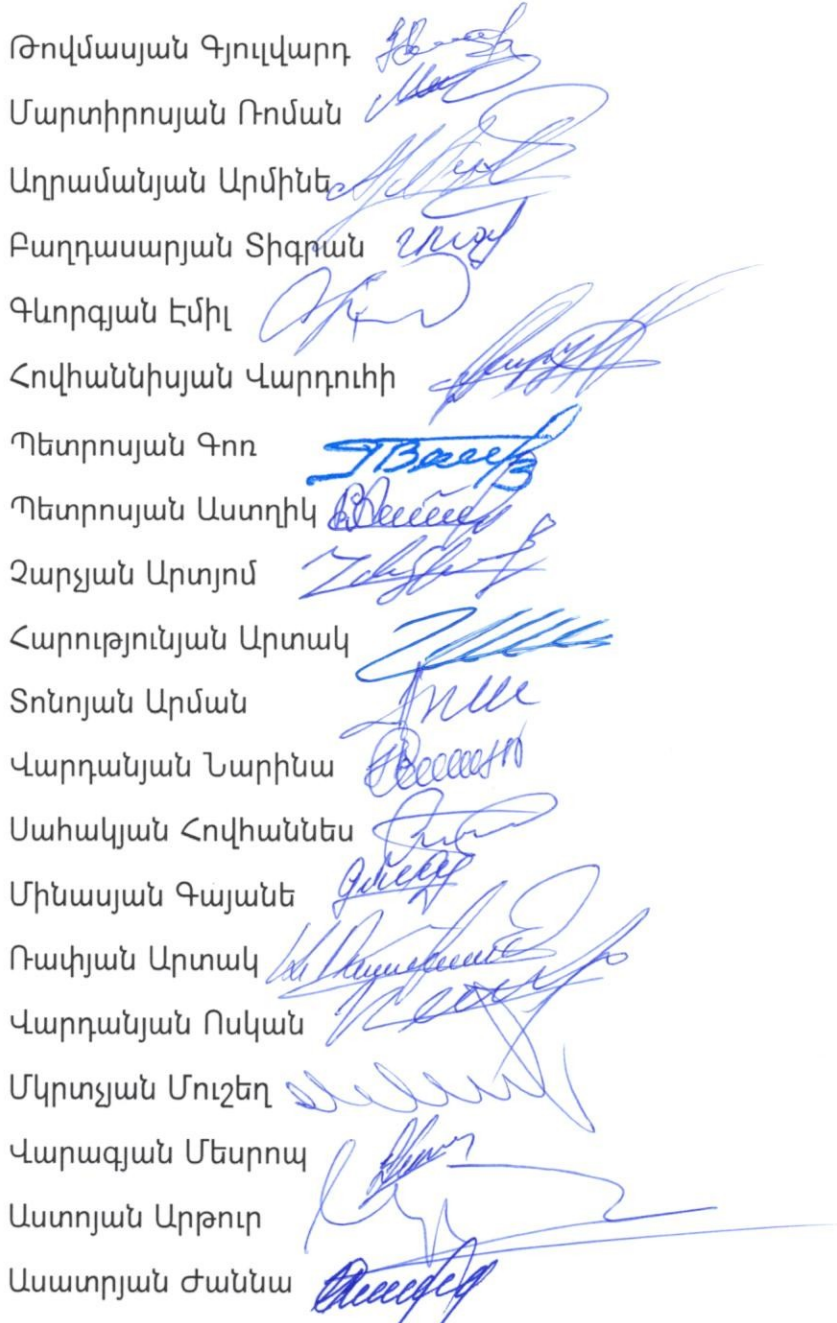 Թովմասյան Գյուլվարդ
Մարտիրոսյան Ռոման
Աղրամանյան Արմինե
Բաղդասարյան Տիգրան
Գևորգյան Էմիլ
Հովհաննիսյան Վարդուհի
Պետրոսյան Գոռ
Պետրոսյան Աստղիկ
Չարչյան Արտյոմ
Հարությունյան Արտակ
Տոնոյան Արման
Վարդանյան Նարինա
Սահակյան Հովհաննես
Մինասյան Գայանե
Ռափյան Արտակ
Վարդանյան Ոսկան
Մկրտչյան Մուշեղ
Վարագյան Մեսրոպ
Աստոյան Արթուր
Ասատրյան Ժաննա